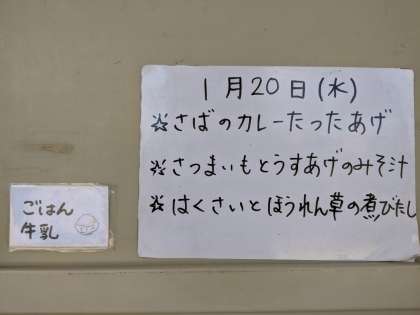 1月20日(水)
☆さばのカレーたつたあげ
☆さつまいもとうすあげのみそ汁
☆はくさいとほうれん草の煮びたし
ごはん
牛乳